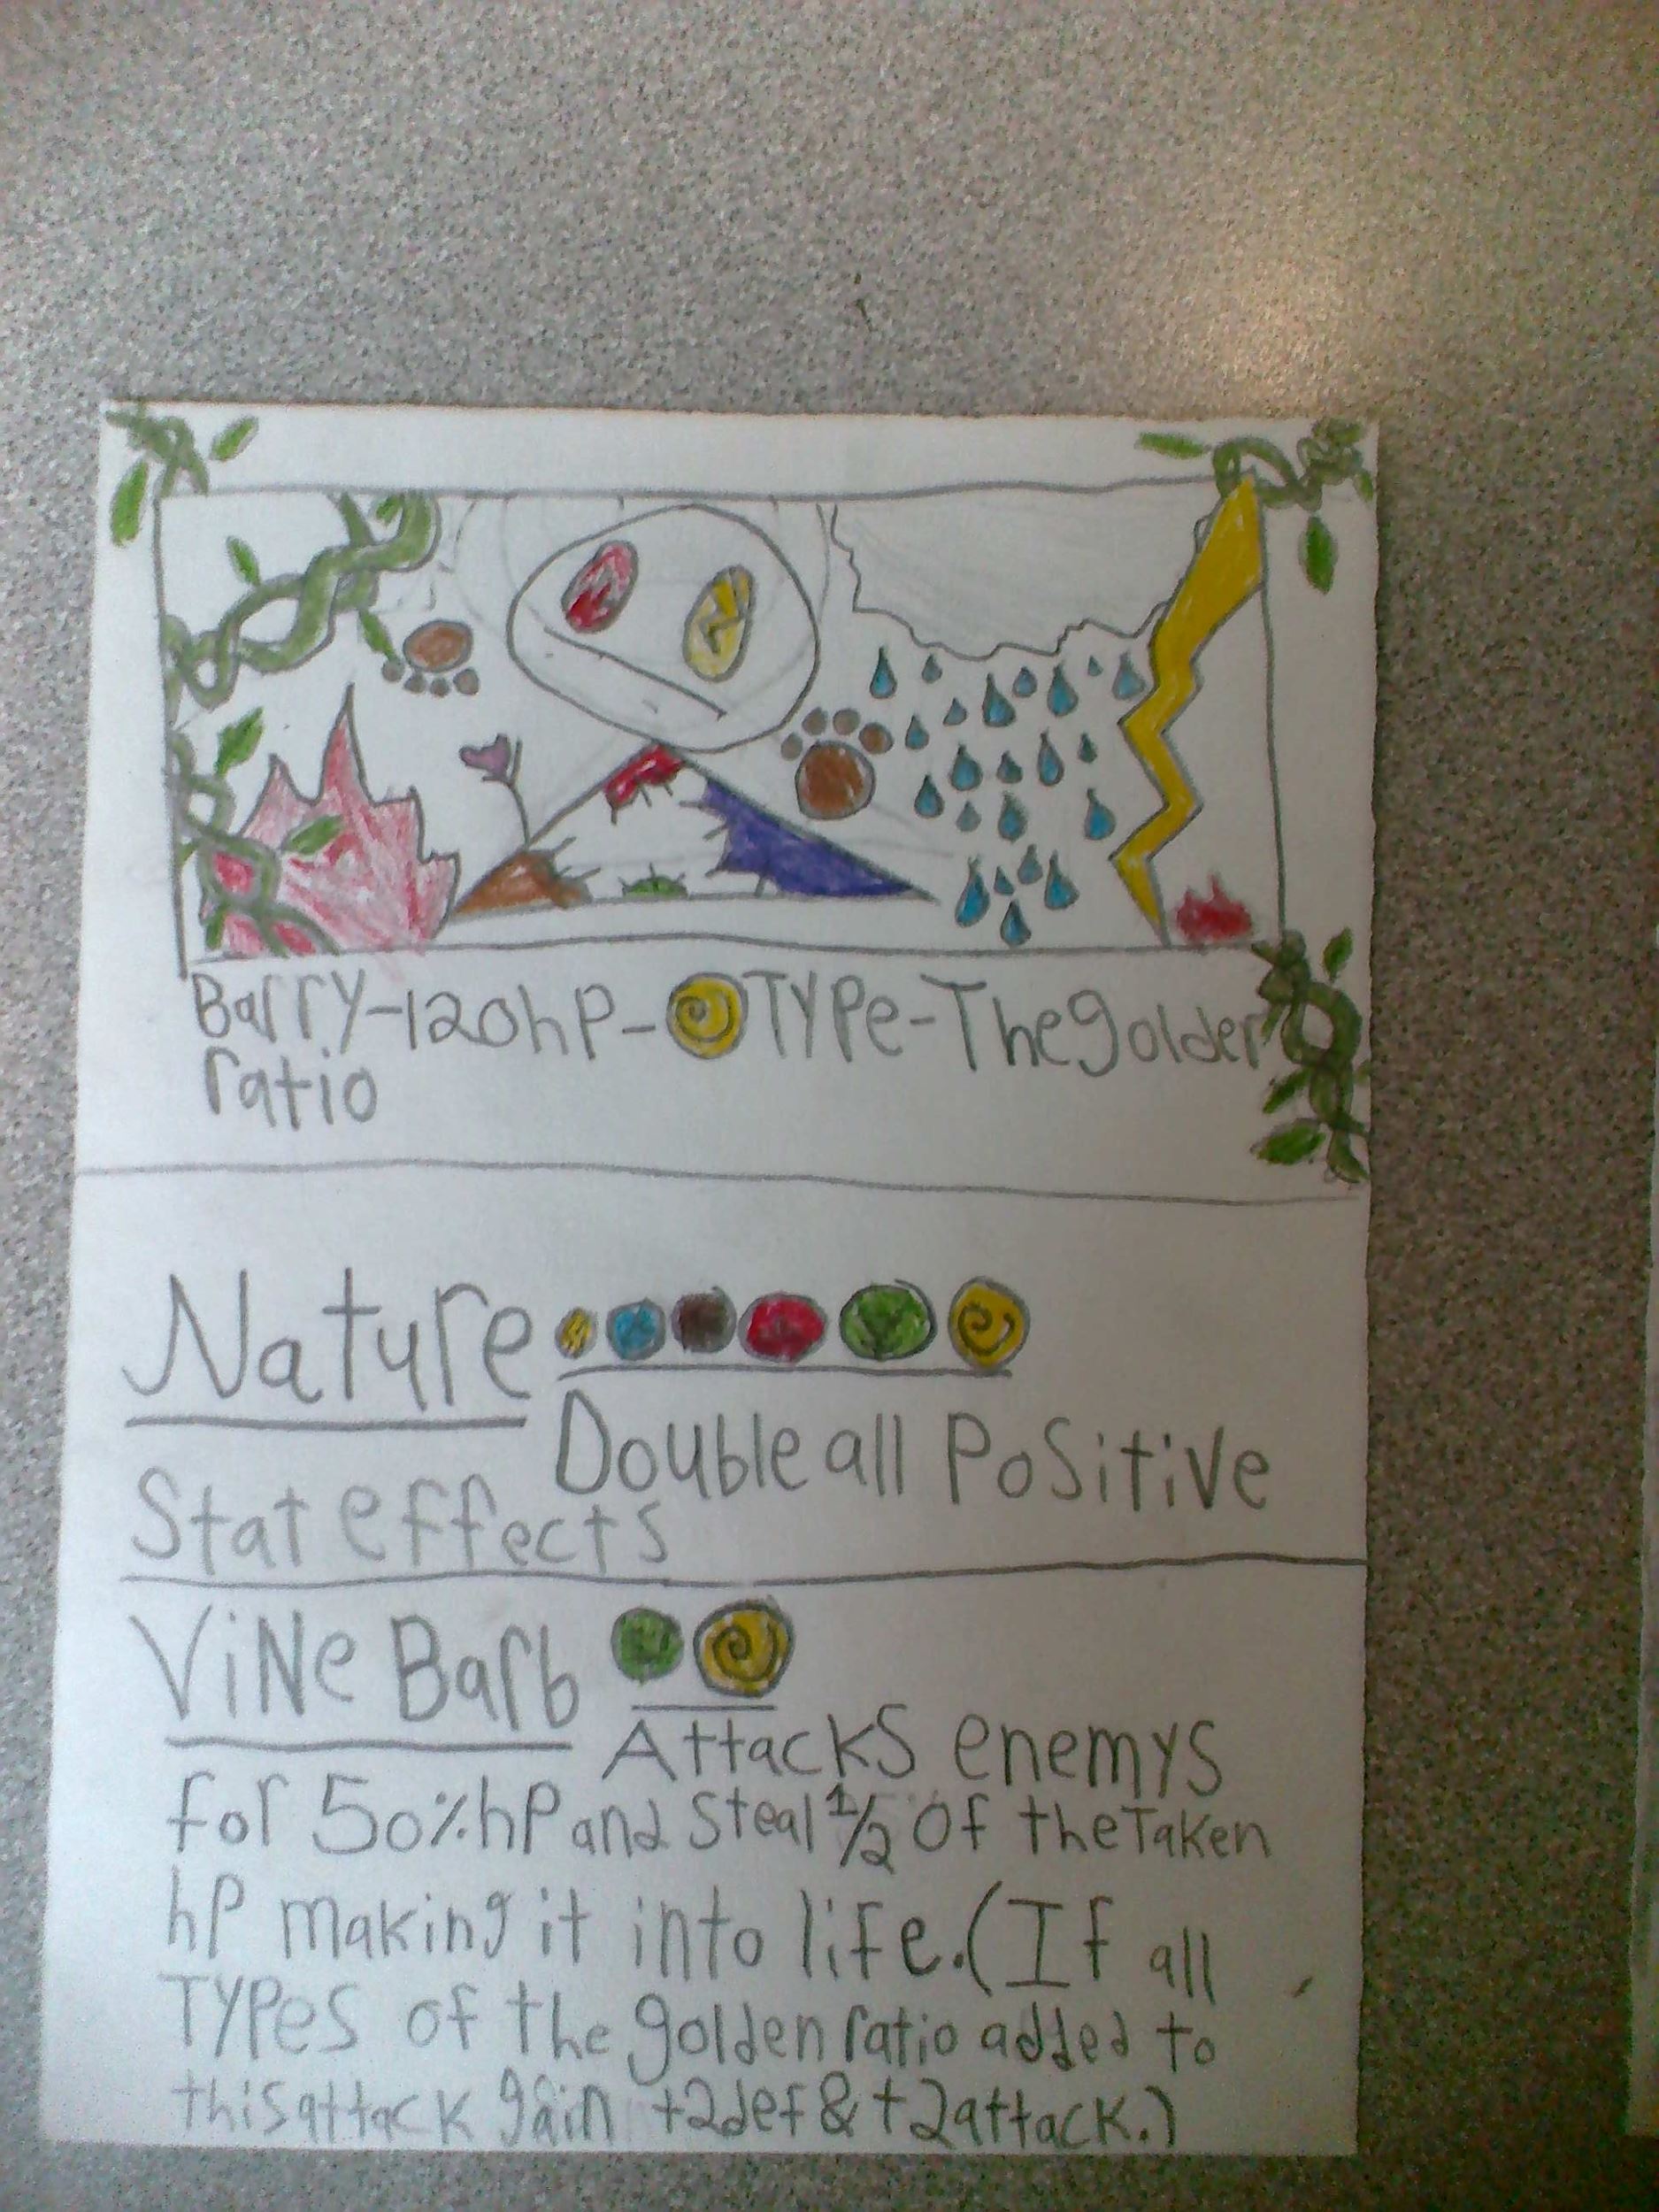 Barry-120hp- Type-The golden
ratio
Nature
Double all Positive
Stat effects
Vine Barb
Attacks enemys
for 50% hp and steal 1/2 of the Taken
hp making it into life. (If all
Types of the golden ratio added to
this attack gain +2def & +2attack.)